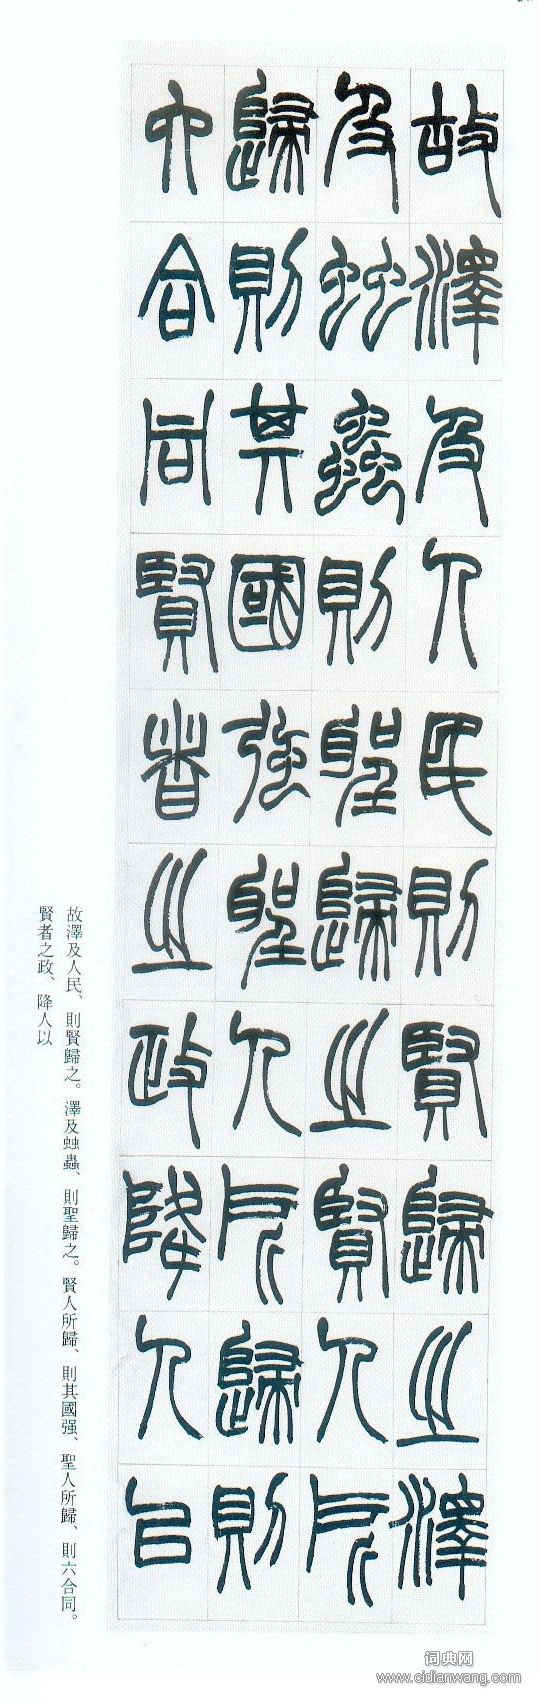 故澤及人民則賢歸之澤
及䖵蟲則聖歸之賢人所
歸則其國强聖人所歸則
六合同賢者之政降人以
故澤及人民、則賢歸之。澤及䖵蟲、則聖歸之。賢人所歸、則其國强、聖人所歸、則六合同。
賢者之政、降人以
词典网
www.cidianwang.com